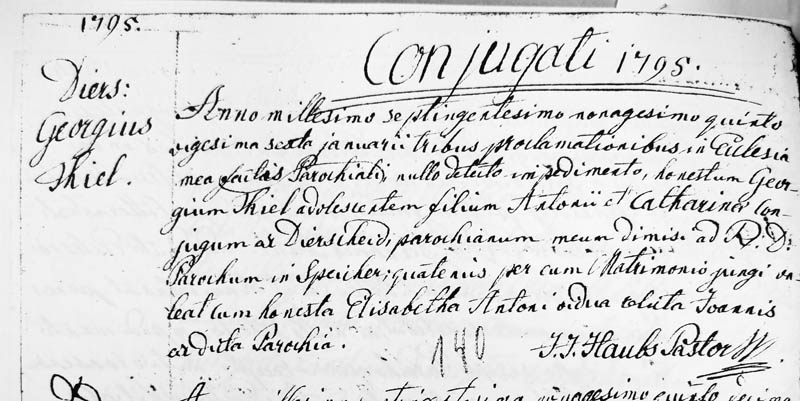 1795.
Conjugati 1795.
Diers:
Georgius
Thiel.
Anno millesimo septingentesimo nonagesimo quinto
vigesima sexta januarii tribus proclamationibus in Eclesia
mea factis Parochiali, nullo detecto impedimento, honestum Geor-
gium Thiel adolescentem filium Antonii et Catharinae Con-
jugum ex Dierscheid, parochianum meum dimisi ad R. D:
Parochum in Speicher; quatenus per eum Matrimonio jungi va-
leat cum honesta Elisabetha Antoni vidua relicta Joannis
ex dicta Parochia.
140
J. J. Haubs Pastor